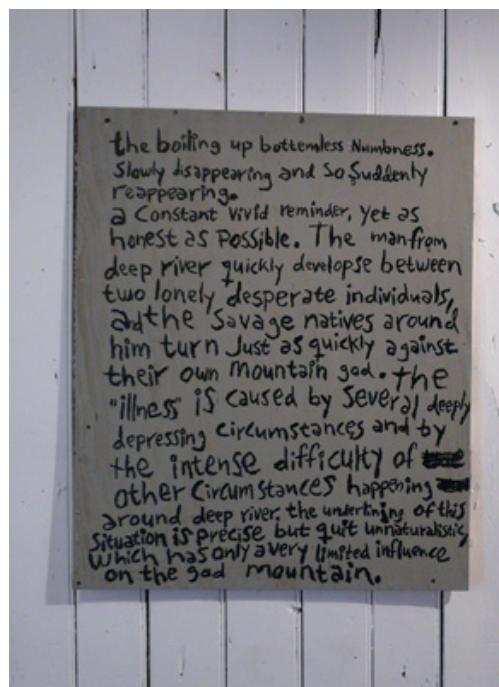 the boiling up bottemless Numbness.
Slowly disappearing and So Suddenly
reappearing.
a Constant vivid reminder, yet as
honest as Possible. The man from
deep river quickly developse between
two lonely desperate individuals,
and the Savage natives around
him turn Just as quickly against
their own Mountain god. the
"illness" is caused by Several deeply
depressing Circumstances and by
the intense difficulty of
other Circumstances happening
around deep river. the underlining of this
Situation is precise but quit unnaturalistic,
which has only a very limited influence
on the god mountain.